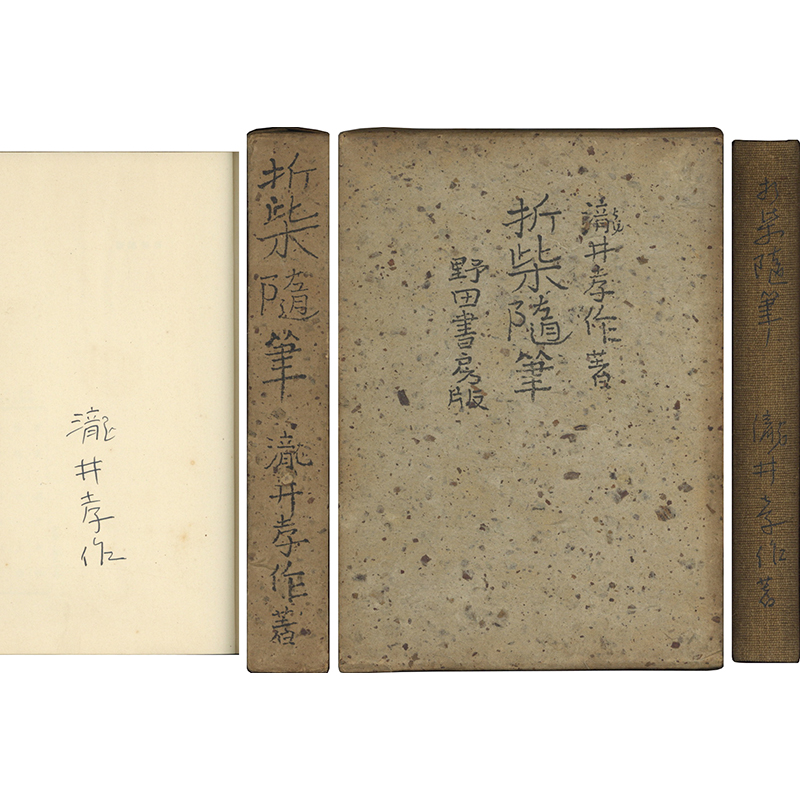 瀧井孝作
折柴隨筆 瀧井孝作著
瀧井孝作著
折柴隨筆
野田書房版
折柴隨筆 瀧井孝作著